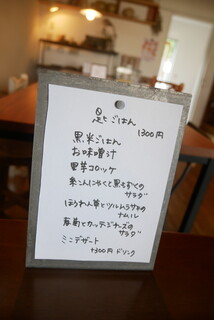 ごはん
1300円
黒米ごはん
お味噌汁
里芋コロッケ
糸こんにゃくと黒もずくの
サラダ
ほうれん草とツルムラサキの
ナムル
春菊とカッテージチーズの
サラダ
ミニデザート
+300円 ドリンク